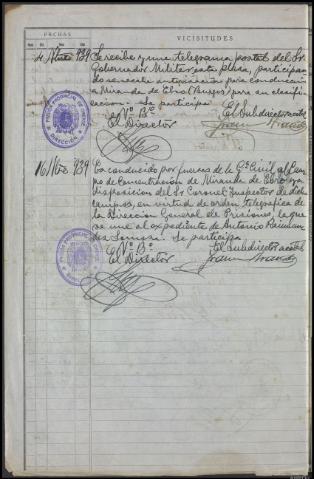 FECHAS
VICISITUDES
4 1939 Se recibe y une telegrama postal del Sr.
Gobernador Militar esta plaza, participan
do autorización para conducir a
Miranda de Ebro (Burgos) para su clasifi-
cación. Se participa
Vº Bº
El Subdirector acctal
El Director
16 939 Es conducido por fuerzas de la Gª Civil al Cam
po de Concentración de Miranda de Ebro y a
disposición del Sr Coronel Inspector de dichos
campos, en virtud de orden telegráfica de
la Dirección General de Prisiones, la que
se une al expediente de Antonio
Se participa
Vº Bº
El Subdirector acctal
El Director